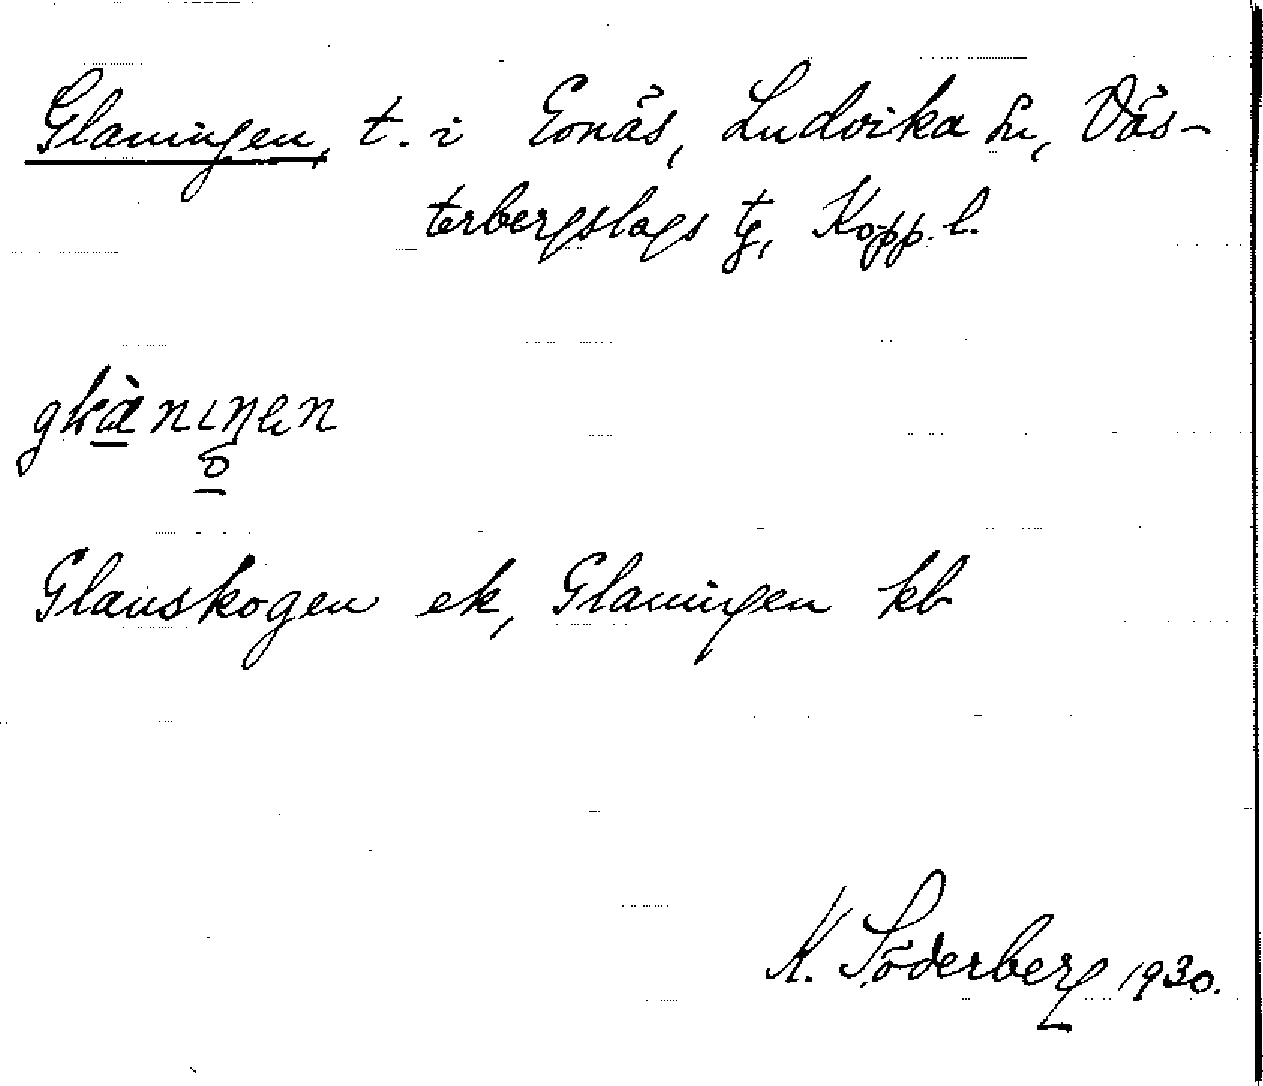 Glaningen, t. i Evnäs, Ludvika ln, Väs-
terbergslags tg, Kopp. l.
Glanskogen ek, Glaningen kb
K. Söderberg 1930.